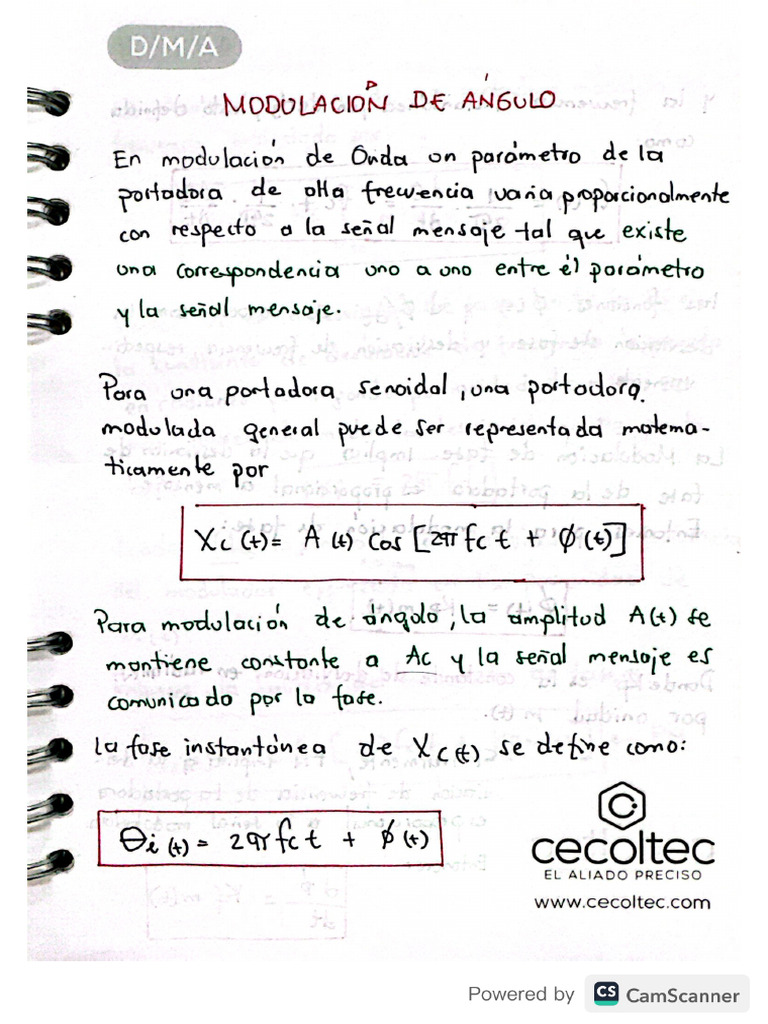 D/M/A
MODULACIÓN DE ÁNGULO
En modulación de Onda un parámetro de la
portadora de alta frecuencia, varia proporcionalmente
con respecto a la señal mensaje tal que existe
una correspondencia uno a uno entre él parámetro
y la señal mensaje.
Para una portadora senoidal, una portadora
modulada general puede ser representada matema-
ticamente por
Xc(t) = A(t) cos [2π fc t + ϕ(t)]
Para modulación de ángulo, la amplitud A(t) se
mantiene constante a Ac y la señal mensaje es
comunicado por la fase.
La fase instantánea de Xc(t) se define como:
θi(t) = 2π fc t + ϕ(t)
cecoltec
EL ALIADO PRECISO
www.cecoltec.com
Powered by CS CamScanner